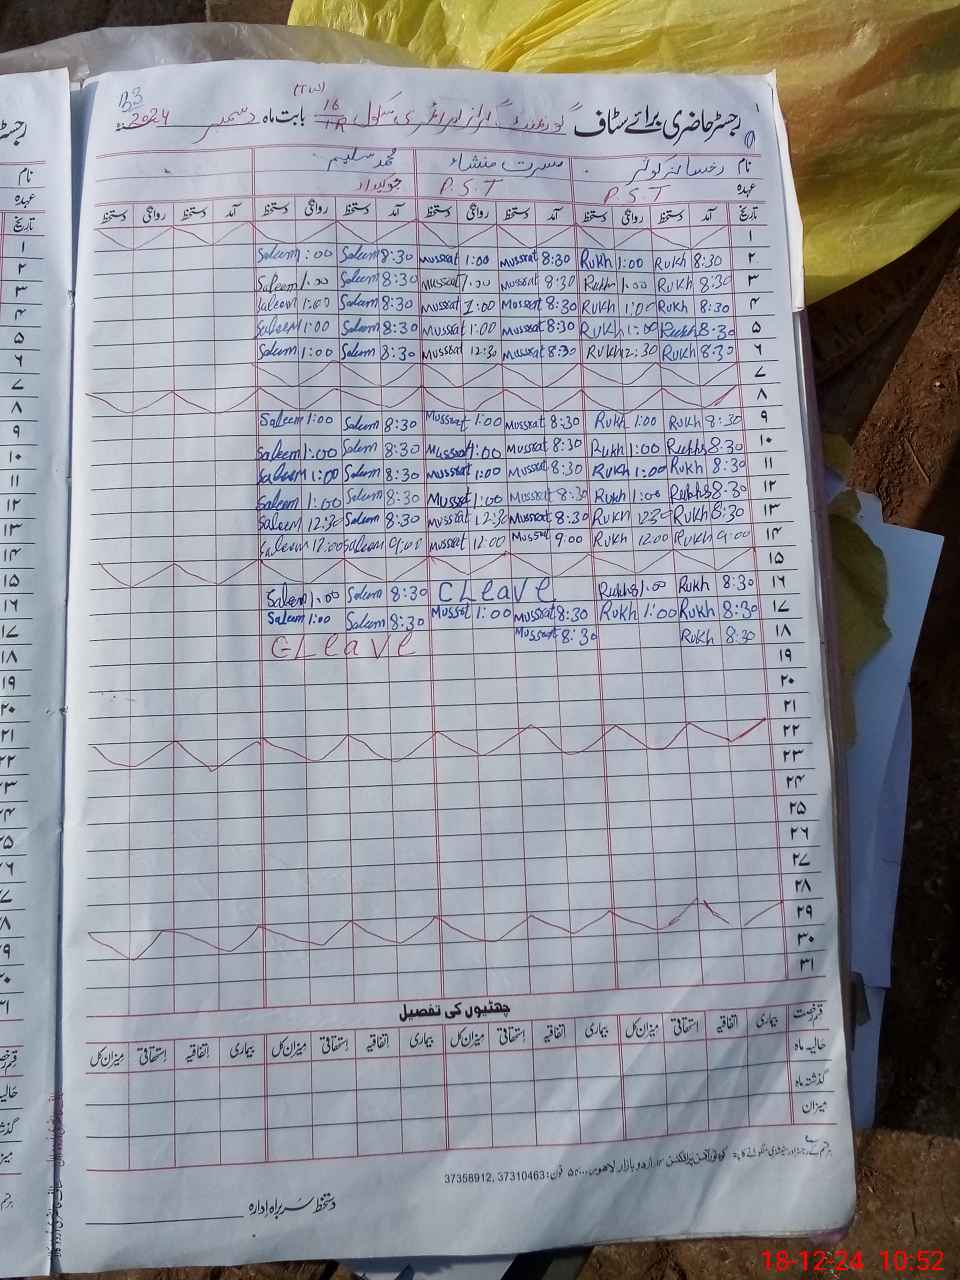 رجسٹر حاضری برائے سٹاف گورنمنٹ گرلز پرائمری سکول 16/TR (TW) بابت ماہ دسمبر 2024
نام رخسانہ کوثر مسرت منشاء محمد سلیم
عہدہ P.S.T P.S.T چوکیدار
تاریخ آمد دستخط روانگی دستخط آمد دستخط روانگی دستخط آمد دستخط روانگی دستخط آمد دستخط روانگی دستخط
۱
۲ 8:30 Rukh 1:00 Rukh 8:30 Mussrat 1:00 Mussrat 8:30 Saleem 1:00 Saleem
۳ 8:30 Rukh 1:00 Rukh 8:30 Mussrat 1:00 Mussrat 8:30 Saleem 1:00 Saleem
۴ 8:30 Rukh 1:00 Rukh 8:30 Mussrat 1:00 Mussrat 8:30 Saleem 1:00 Saleem
۵ 8:30 Rukh 1:00 Rukh 8:30 Mussrat 1:00 Mussrat 8:30 Saleem 1:00 Saleem
۶ 8:30 Rukh 12:30 Rukh 8:30 Mussrat 12:30 Mussrat 8:30 Saleem 1:00 Saleem
۷
۸
۹ 8:30 Rukh 1:00 Rukh 8:30 Mussrat 1:00 Mussrat 8:30 Saleem 1:00 Saleem
۱۰ 8:30 Rukh 1:00 Rukh 8:30 Mussrat 1:00 Mussrat 8:30 Saleem 1:00 Saleem
۱۱ 8:30 Rukh 1:00 Rukh 8:30 Mussrat 1:00 Mussrat 8:30 Saleem 1:00 Saleem
۱۲ 8:30 Rukh 1:00 Rukh 8:30 Mussrat 1:00 Mussrat 8:30 Saleem 1:00 Saleem
۱۳ 8:30 Rukh 12:30 Rukh 8:30 Mussrat 12:30 Mussrat 8:30 Saleem 12:30 Saleem
۱۴ 9:00 Rukh 12:00 Rukh 9:00 Mussrat 12:00 Mussrat 9:00 Saleem 12:00 Saleem
۱۵
۱۶ 8:30 Rukh 1:00 Rukh CLeave 8:30 Saleem 1:00 Saleem
۱۷ 8:30 Rukh 1:00 Rukh 8:30 Mussrat 1:00 Mussrat 8:30 Saleem 1:00 Saleem
۱۸ 8:30 Rukh 8:30 Mussrat CLeave
۱۹
۲۰
۲۱
۲۲
۲۳
۲۴
۲۵
۲۶
۲۷
۲۸
۲۹
۳۰
۳۱
چھٹیوں کی تفصیل
قسم رخصت بیماری اتفاقیہ استحقاقی میزان کل بیماری اتفاقیہ استحقاقی میزان کل بیماری اتفاقیہ استحقاقی میزان کل بیماری اتفاقیہ استحقاقی میزان کل
حالیہ ماہ
گذشتہ ماہ
میزان
اردو بازار لاہور فون: 37310463, 37358912
دستخط سربراہ ادارہ
18-12-24 10:52